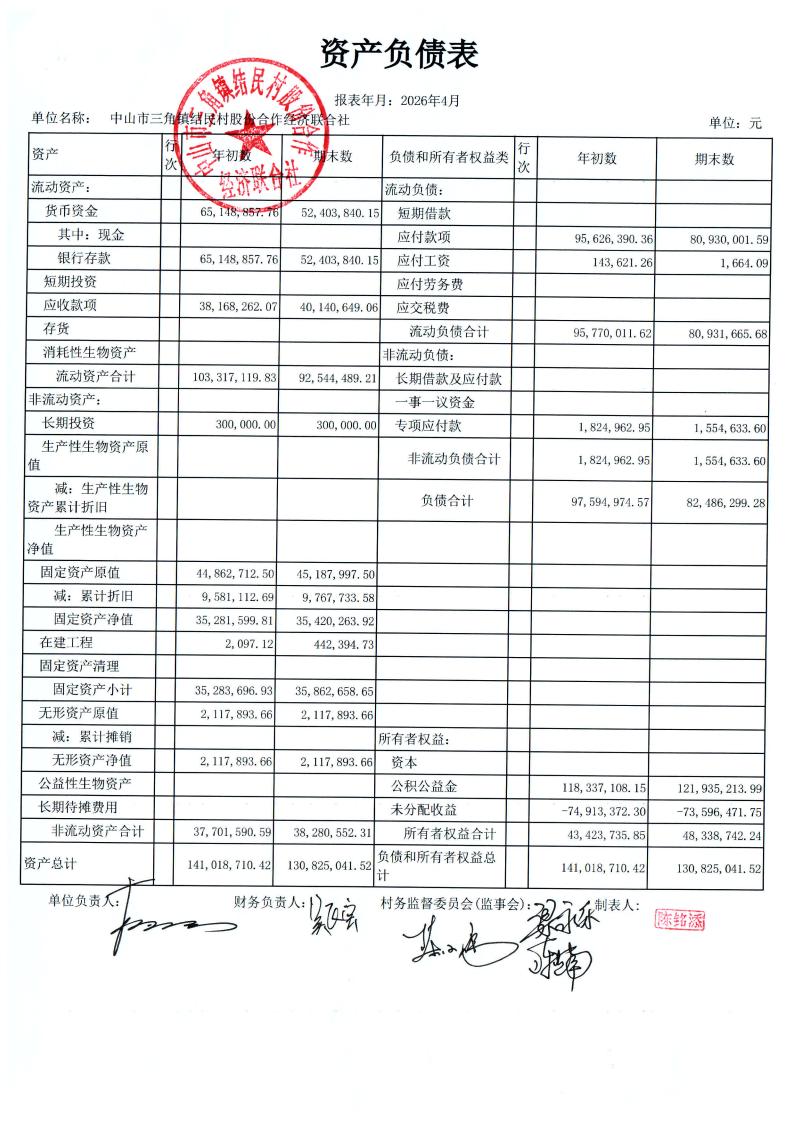 资产负债表
报表年月：2026年4月
单位名称： 中山市三角镇结民村股份合作经济联合社 单位：元
资产 行次 年初数 期末数 负债和所有者权益类 行次 年初数 期末数
流动资产： 流动负债：
货币资金 65,148,857.76 52,403,840.15 短期借款
其中：现金 应付款项 95,626,390.36 80,930,001.59
银行存款 65,148,857.76 52,403,840.15 应付工资 143,621.26 1,664.09
短期投资 应付劳务费
应收款项 38,168,262.07 40,140,649.06 应交税费
存货 流动负债合计 95,770,011.62 80,931,665.68
消耗性生物资产 非流动负债：
流动资产合计 103,317,119.83 92,544,489.21 长期借款及应付款
非流动资产： 一事一议资金
长期投资 300,000.00 300,000.00 专项应付款 1,824,962.95 1,554,633.60
生产性生物资产原值 非流动负债合计 1,824,962.95 1,554,633.60
减：生产性生物资产累计折旧 负债合计 97,594,974.57 82,486,299.28
生产性生物资产净值
固定资产原值 44,862,712.50 45,187,997.50
减：累计折旧 9,581,112.69 9,767,733.58
固定资产净值 35,281,599.81 35,420,263.92
在建工程 2,097.12 442,394.73
固定资产清理
固定资产小计 35,283,696.93 35,862,658.65
无形资产原值 2,117,893.66 2,117,893.66
减：累计摊销 所有者权益：
无形资产净值 2,117,893.66 2,117,893.66 资本
公益性生物资产 公积公益金 118,337,108.15 121,935,213.99
长期待摊费用 未分配收益 -74,913,372.30 -73,596,471.75
非流动资产合计 37,701,590.59 38,280,552.31 所有者权益合计 43,423,735.85 48,338,742.24
资产总计 141,018,710.42 130,825,041.52 负债和所有者权益总计 141,018,710.42 130,825,041.52
单位负责人： 财务负责人： 村务监督委员会(监事会)： 制表人：
陈铭添
中山市三角镇结民村股份合作
经济联合社